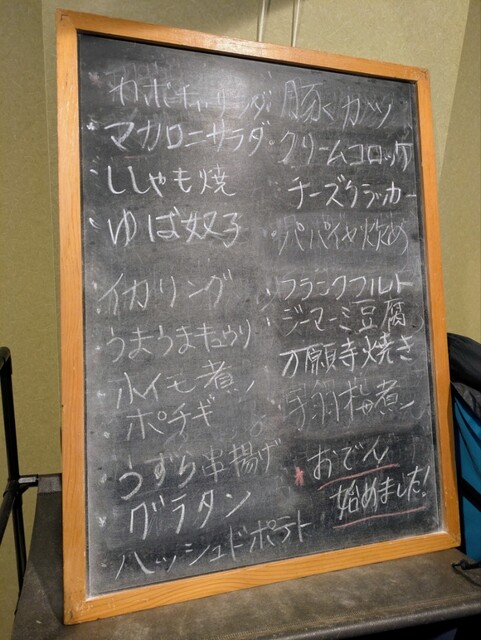 カボチャサラダ
マカロニサラダ
ししゃも焼
ゆば奴子
イカリング
うまうまキュウリ
水イモ煮
ポチギ
うずら串揚げ
グラタン
ハッシュドポテト
豚くカツ
クリームコロッケ
チーズクラッカー
パパイヤ炒め
フランクフルト
ジーマーミ豆腐
万願寺焼き
手羽梅煮
おでん
始めました!